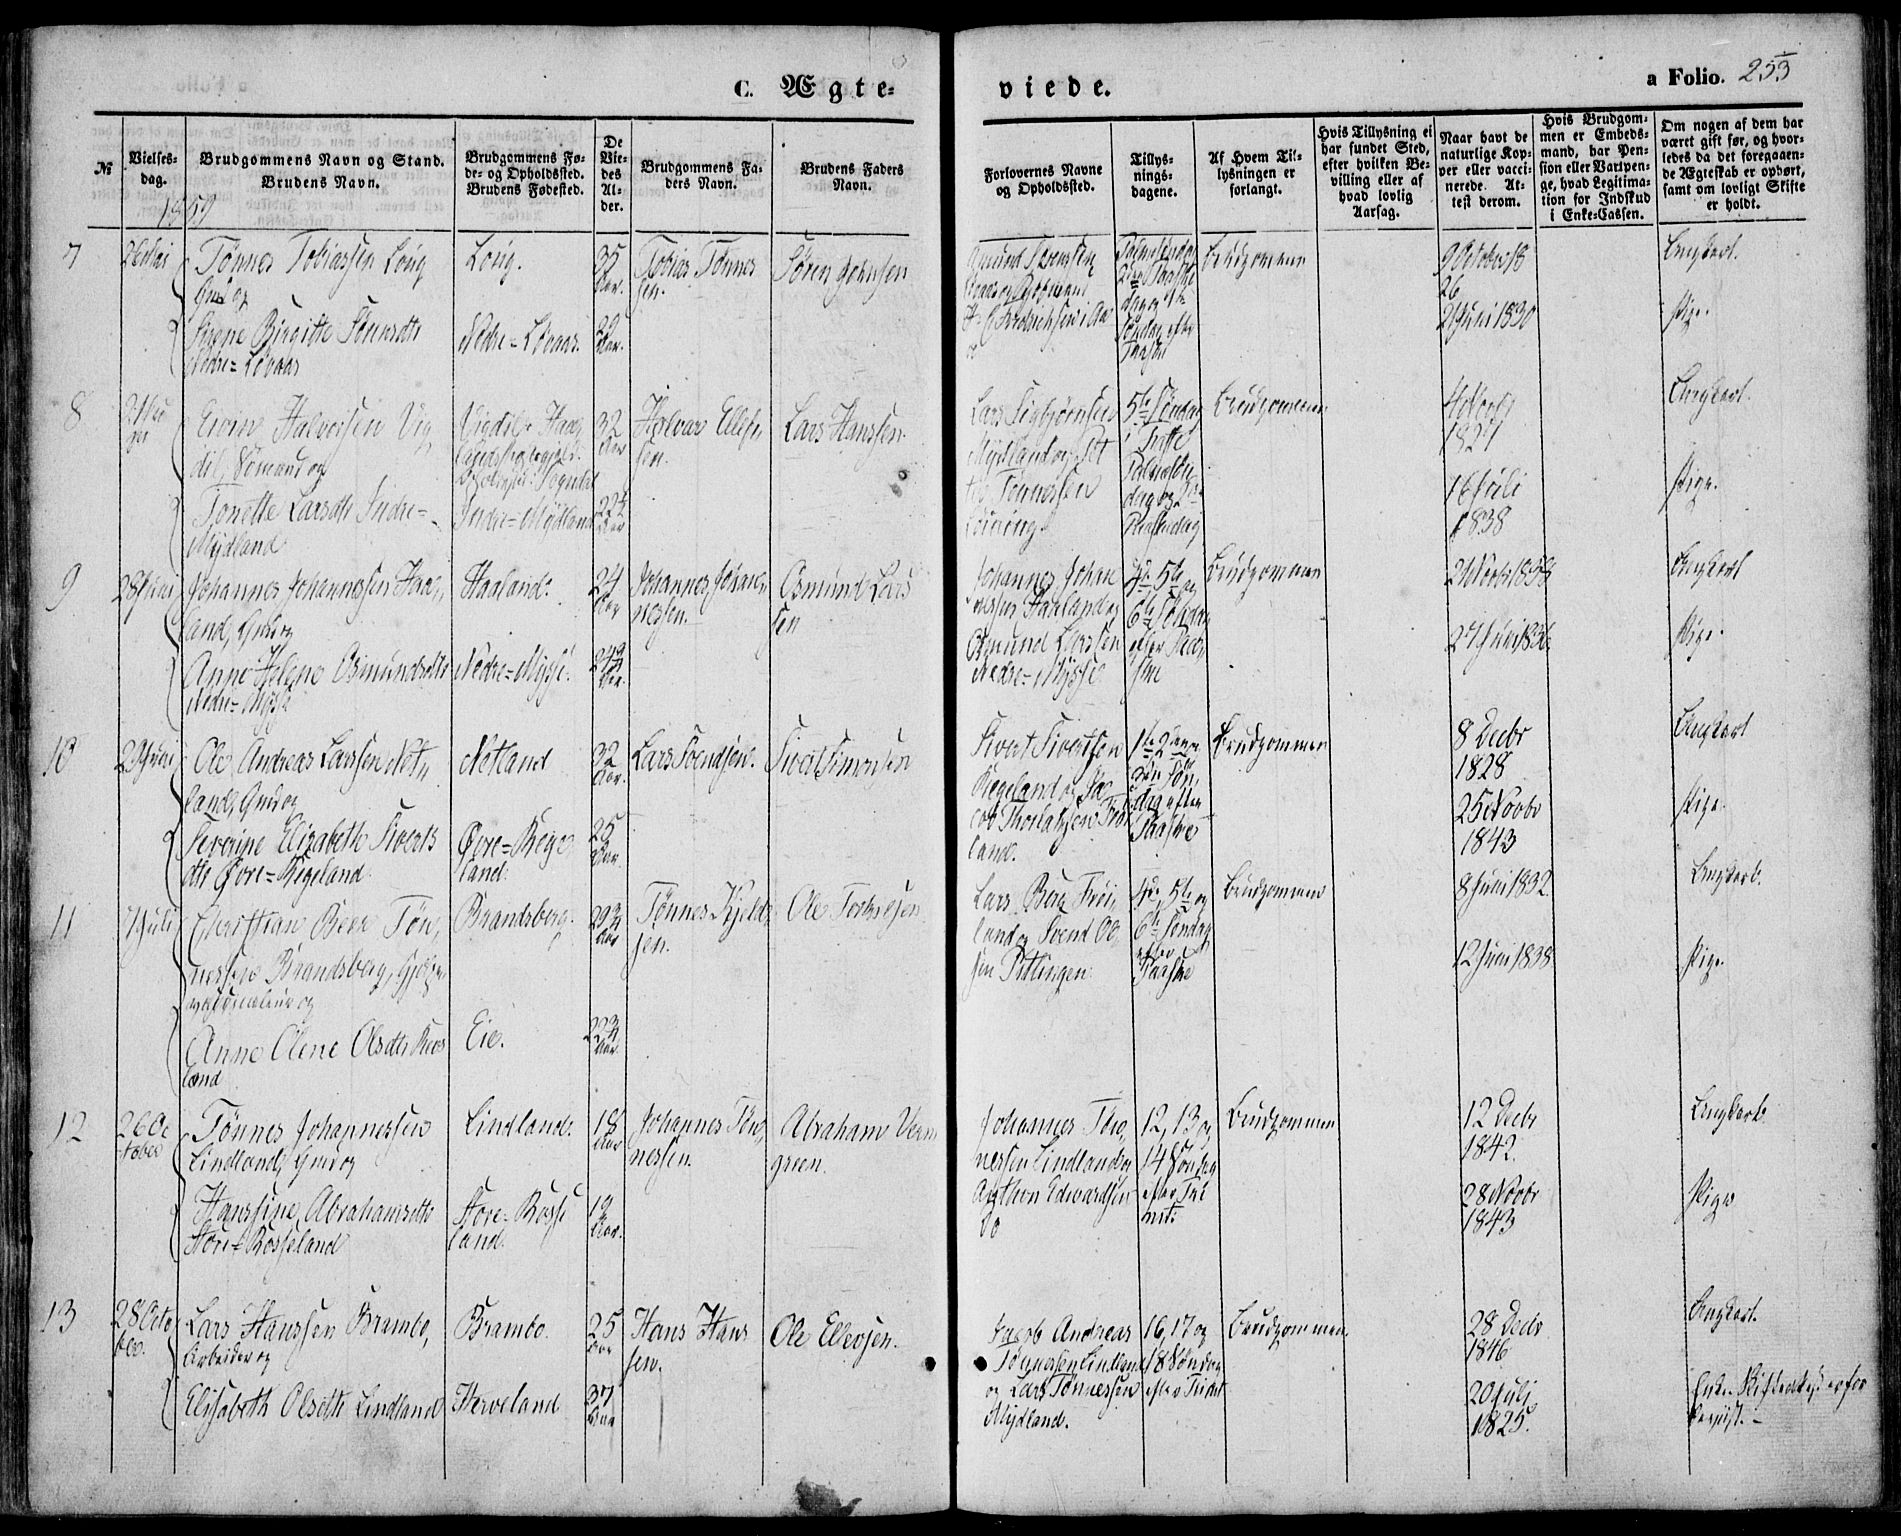 C. Ægte-
viede.
a Folio. 253
№
Vielses-
dag.
Brudgommens Navn og Stand.
Brudens Navn.
Brudgommens Fø-
de- og Opholdssted.
Brudens Fødested.
De
Vie-
des
Al-
der.
Brudgommens Fa-
ders Navn.
Brudens Faders
Navn.
Forlovernes Navne
og Opholdssted.
Tillys-
nings-
dagene.
Af Hvem Til-
lysningen er
forlangt.
Hvis Tillysning ei
har fundet Sted,
efter hvilken Be-
villing eller af
hvad lovlig
Aarsag.
Naar havt de
naturlige Kop-
per eller vacci-
nerede. At-
test derom.
Hvis Brudgom-
men er Embeds-
mand, har Pen-
sion eller Vartpen-
ge, hvad Legitima-
tion for Indskud
i Enke-Cassen.
Om nogen af dem har
været gift før, og hvor-
ledes da det foregaaen-
de Ægteskab er ophørt,
samt om lovligt Skifte
er holdt.
1859
7
Tønnes Tobiassen Løng
Gmd og
Sirene Birgitte Sørensdtr
Nedre=Løvaas
Løng.
Nedre=Løvaas.
35
Aar.
29
Aar.
Tobias Tønnes
sen.
Søren Johnsen
Amund Sørensen
Palmesøndag
2den Paaske
dag og 1ste
Søndag efter
Paaske
Brudgommen
9 October 18
26
2 Juni 1830
Ungkarl.
Pige.
8
Halvorsen Vig
dil, Sømand og
Tonette Larsdtr Indre=
Mydland
Vigdil
Sogndal
Indre=Mydland
32
Aar
22¼
Aar
Halvor Ellef
sen.
Lars Hanssen.
Lars Sigbjørnsen
Mydland og
Tønnessen
5te Søndag
i Faste
Palmesøn
dag og 2den
Paaskedag
Brudgommen
1827
16 Juli
1838
Ungkarl.
Pige.
9
28 Juni
Johannes Johannessen Haa
land, Gmd og
Anne Helene Osmundsdtr
Nedre=Mysse
Haaland.
Nedre=Mysse.
24
Aar
Aar.
Johannes Johan
nessen.
Osmund Lars
sen
Johannes Johan
nessen Haaland og
Osmund Larssen
Nedre=Mysse
4de 5te og
6te Søndag
efter Paa
ske
Brudgommen
27 Juni 1836
Ungkarl
Pige.
10
29 Juni
Ole Andreas Larssen Net
land, Gmd og
Severine Elizabeth Siverts
dtr Øvre=Regeland
Netland
Øvre=Rege
land.
32
Aar.
25
Aar.
Lars Svendsen.
Sivert Simonsen
Sivert Sivertsen
Regeland og Ja
cob
land.
1ste 2den og
3die Søn
dag efter
Paaske
Brudgommen
8 Decbr
1828
25 Novbr
1843
Ungkarl
Pige.
11
7 Juli
Christian Beer Tøn
nessen Brandsberg,
og
Anne Olene Olsdtr
land
Brandsberg.
Eie.
29¾
Aar
22¾
Aar.
Tønnes Kjeld
sen.
Ole
Lars Berg Frøi
land og Svend Ol
sen Pitlingen
4de, 5te og
6te Søndag
efter
Paaske
Brudgommen
8 Juni 1832
12 Juni 1838
Ungkarl.
Pige.
12
26 Oc
tober
Tønnes Johannessen
Lindland, Gmd og
Hanssine Abrahamsdtr
Store=Rosseland
Lindland.
Store=Rosse
land.
18
Aar
19
Aar.
Johannes Tøn
nessen.
Abraham Vern
green.
Johannes Tøn
nessen Lindland og
Anthon Edwardsen
Bø
12, 13 og
14 Søndag
efter Tri
nit:
Brudgommen
12 Decbr
1842.
28 Novbr
1843
Ungkarl.
Pige
13
28 Octo
ber.
Lars Hanssen Brambo,
Arbeider og
Elisabeth Olsdtr Lindland
Brambo.
Herveland
25
Aar
37
Aar
Hans Hans
sen.
Ole Ellevsen.
Jacob Andreas
Tønnessen Lindland
og Lars Tønnessen
Mydland.
16, 17 og
18 Søndag
efter Trinit
Brudgommen.
28 Decbr
1846
20 Juli
1825.
Ungkarl.
Enke. Skifte